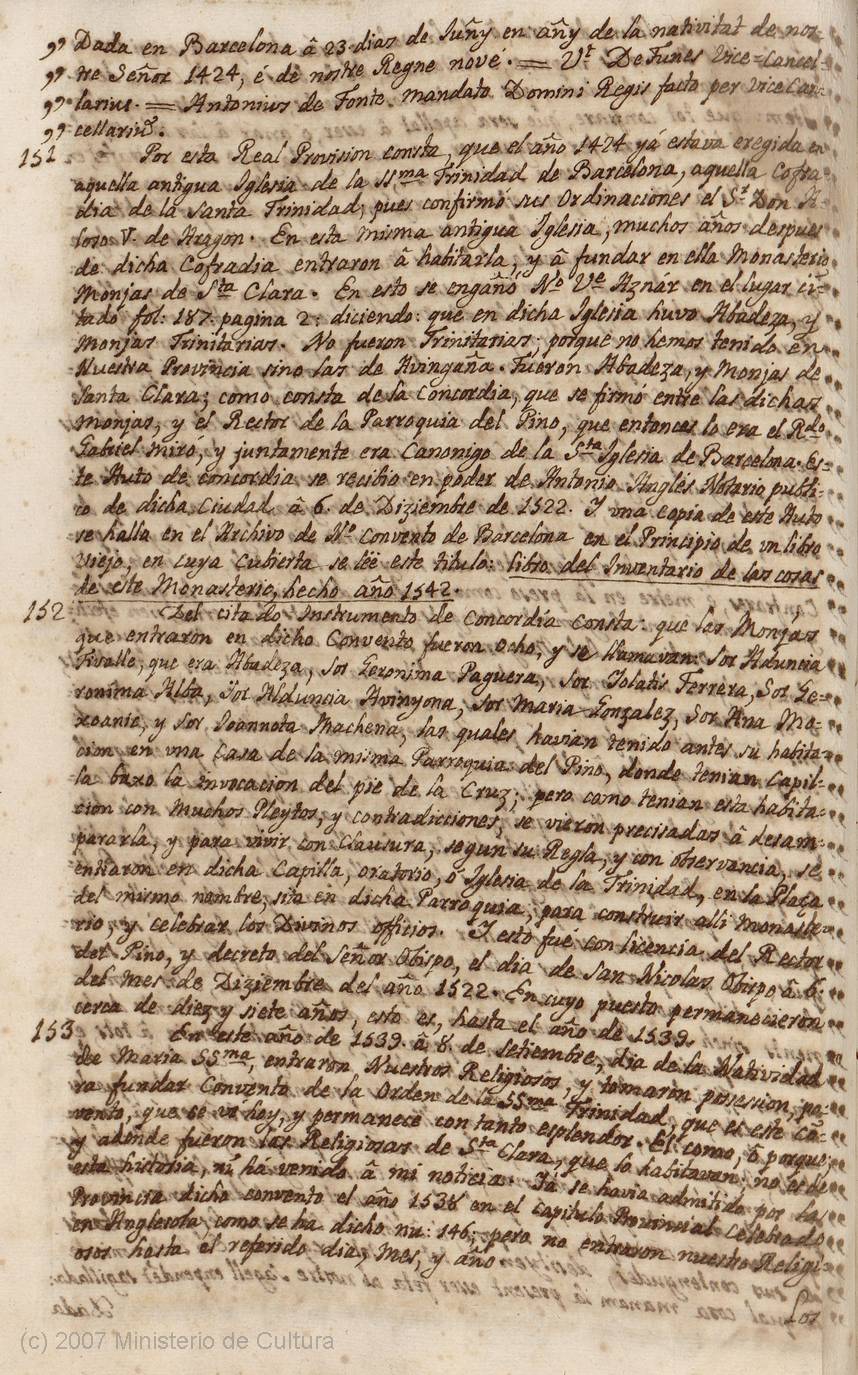 ,, Dada en Barcelona â 23 dias de Juñy en añy de la nativitat de nos-
,, tre Señor 1424, é de nostre Regne nové. = Vt. De Funes Vice=Cancel-
,, larius. = Antonius de Fonte mandato Domini Regis facto per ViceCan-
,, cellariũ.
151 Por esta Real Provision consta, que el año 1424 yá estava eregida en
aquella antigua Iglesia de la SSma Trinidad de Barcelona, aquella Cofra-
dia de la Santa Trinidad; pues confirmó sus Ordinaciones el Sr. Don A-
lonso V. de Aragon. En esta misma antigua Iglesia, muchos años despues
de dicha Cofradia entraron â habitarla, y â fundar en ella Monasterio
Monjas de Sta Clara. En esto se engañó No. Ve Aznár en el lugar ci-
tado fol: 187: pagina 2: diciendo: que en dicha Iglesia huvo Abadeza, y
Monjas Trinitarias. No fueron Trinitarias; porque no hemos tenido en
Nuestra Provincia sino las de Avingaña. Fueron Abadeza, y Monjas de
Santa Clara; como consta de la Concordia, que se firmó entre las dichas
Monjas, y el Rector de la Parroquia del Pino, que entonces lo era el Rdo.
Gabriel Miró, y juntamente era Canonigo de la Sta Iglesia de Barcelona. Es-
te Auto de concordia se recibio en poder de Antonio Anglès Notario publi-
co de dicha Ciudad â 6. de Diziembre de 1522. Y una copia de este Auto
se halla en el Archivo de No. Convento de Barcelona en el Principio de un libro
viejo, en cuya Cubierta se lée este titulo: libro del Inventario de las cosas
de este Monasterio, hecho año 1542.
152 Del citado Instrumento de Concordia consta: que las Monjas
que entraron en dicho Convento fueron ocho, y se llamavan: Sor Alduncia
Tivalle, que era Abadeza, Sor Geronima Paguera, Sor Iolatis Ferrera, Sor Ge-
ronima Alba, Sor Alduncia Avinyona, Sor Maria Gonzalez, Sor Ana Mo-
xoanie, y Sor Joannota Machena, las quales havian tenido antes su habita-
cion en una Casa de la misma Parroquia del Pino, donde tenian Capil-
la baxo la invocacion del pie de la Cruz; pero como tenian esta habita-
cion con muchos Pleytos, y contradicciones, se vieron precisadas â desam-
pararla; y para vivir con Clausura, segun su Regla, y con observancia, se
entraron en dicha Capilla, oratorio, ó Iglesia de la Trinidad, en la Plaça
del mismo nombre, sita en dicha Parroquia; para construir alli Monaste-
rio, y celebrar los Divinos officios. Y esto fué con licencia del Rector
del Pino, y decreto del Señor Obispo, el dia de San Nicolas Obispo â 6.
del mes de Diziembre del año 1522. En cuyo puesto permanecieron
cerca de diez y siete años, esto es, hasta el año de 1539.
153 En este año de 1539. â 8. de Setiembre, dia de la Natividad
de Maria SSma, entraron Nuestros Religiosos, y tomaron possesion, pa-
ra fundar Convento de la Orden de la SSma Trinidad, que es este Cõ-
vento, que se ve hoy, y permanece con tanto esplendor. El como, ó porque,
y adonde fueron las Religiosas de Sta Clara, que lo habitavan; no es de
esta historia, ni há venido â mi noticia. Yá se havia admitido por la
Provincia dicho convento el año 1538 en el Capitulo Provincial celebrado
en Anglesola, como se ha dicho nu: 146; pero no entraron nuestros Religi-
osos hasta el referido dia, mes, y año.
Los
(c) 2007 Ministerio de Cultura